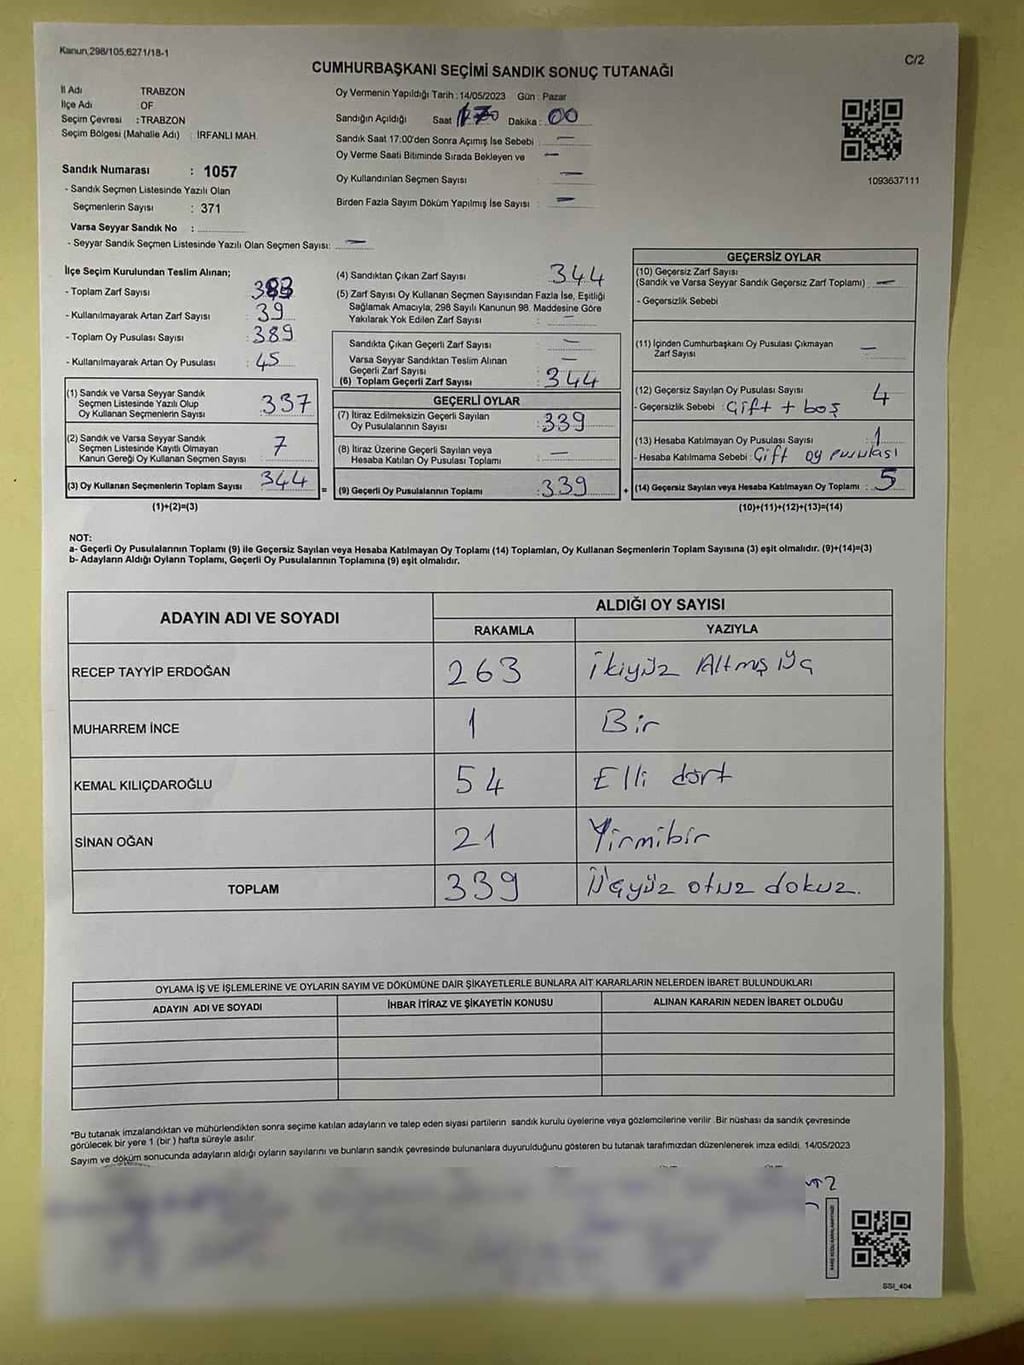 Kanun 298/105,6271/18-1
C/2
CUMHURBAŞKANI SEÇİMİ SANDIK SONUÇ TUTANAĞI
İl Adı TRABZON
İlçe Adı OF
Seçim Çevresi : TRABZON
Seçim Bölgesi (Mahalle Adı) : İRFANLI MAH.
Sandık Numarası : 1057
- Sandık Seçmen Listesinde Yazılı Olan
Seçmenlerin Sayısı : 371
Varsa Seyyar Sandık No :
- Seyyar Sandık Seçmen Listesinde Yazılı Olan Seçmen Sayısı: —
Oy Vermenin Yapıldığı Tarih : 14/05/2023 Gün : Pazar
Sandığın Açıldığı Saat Dakika : 00
Sandık Saat 17:00'den Sonra Açımış İse Sebebi —
Oy Verme Saati Bitiminde Sırada Bekleyen ve —
Oy Kullandırılan Seçmen Sayısı : —
Birden Fazla Sayım Döküm Yapılmış İse Sayısı : —
1093637111
İlçe Seçim Kurulundan Teslim Alınan;
- Toplam Zarf Sayısı :
- Kullanılmayarak Artan Zarf Sayısı : 39
- Toplam Oy Pusulası Sayısı : 389
- Kullanılmayarak Artan Oy Pusulası : 45
(1) Sandık ve Varsa Seyyar Sandık
Seçmen Listesinde Yazılı Olup
Oy Kullanan Seçmenlerin Sayısı : 337
(2) Sandık ve Varsa Seyyar Sandık
Seçmen Listesinde Kayıtlı Olmayan
Kanun Gereği Oy Kullanan Seçmen Sayısı : 7
(3) Oy Kullanan Seçmenlerin Toplam Sayısı : 344
(1)+(2)=(3)
(4) Sandıktan Çıkan Zarf Sayısı : 344
(5) Zarf Sayısı Oy Kullanan Seçmen Sayısından Fazla İse, Eşitliği
Sağlamak Amacıyla; 298 Sayılı Kanunun 98. Maddesine Göre
Yakılarak Yok Edilen Zarf Sayısı : —
Sandıkta Çıkan Geçerli Zarf Sayısı : —
Varsa Seyyar Sandıktan Teslim Alınan
Geçerli Zarf Sayısı : —
(6) Toplam Geçerli Zarf Sayısı : 344
GEÇERLİ OYLAR
(7) İtiraz Edilmeksizin Geçerli Sayılan
Oy Pusulalarının Sayısı : 339
(8) İtiraz Üzerine Geçerli Sayılan veya
Hesaba Katılan Oy Pusulası Toplamı : —
(9) Geçerli Oy Pusulalarının Toplamı : 339
GEÇERSİZ OYLAR
(10) Geçersiz Zarf Sayısı
(Sandık ve Varsa Seyyar Sandık Geçersiz Zarf Toplamı) : —
- Geçersizlik Sebebi
(11) İçinden Cumhurbaşkanı Oy Pusulası Çıkmayan
Zarf Sayısı : —
(12) Geçersiz Sayılan Oy Pusulası Sayısı : 4
- Geçersizlik Sebebi : Çift + boş
(13) Hesaba Katılmayan Oy Pusulası Sayısı : 1
- Hesaba Katılmama Sebebi : Çift oy pusulası
(14) Geçersiz Sayılan veya Hesaba Katılmayan Oy Toplamı : 5
(10)+(11)+(12)+(13)=(14)
NOT:
a- Geçerli Oy Pusulalarının Toplamı (9) ile Geçersiz Sayılan veya Hesaba Katılmayan Oy Toplamı (14) Toplamları, Oy Kullanan Seçmenlerin Toplam Sayısına (3) eşit olmalıdır. (9)+(14)=(3)
b- Adayların Aldığı Oyların Toplamı, Geçerli Oy Pusulalarının Toplamına (9) eşit olmalıdır.
ADAYIN ADI VE SOYADI
ALDIĞI OY SAYISI
RAKAMLA YAZIYLA
RECEP TAYYİP ERDOĞAN 263 ikiyüz Altmış üç
MUHARREM İNCE 1 Bir
KEMAL KILIÇDAROĞLU 54 Elli dört
SİNAN OĞAN 21 Yirmibir
TOPLAM 339 Üçyüz otuz dokuz.
OYLAMA İŞ VE İŞLEMLERİNE VE OYLARIN SAYIM VE DÖKÜMÜNE DAİR ŞİKAYETLERLE BUNLARA AİT KARARLARIN NELERDEN İBARET BULUNDUKLARI
ADAYIN ADI VE SOYADI İHBAR İTİRAZ VE ŞİKAYETİN KONUSU ALINAN KARARIN NEDEN İBARET OLDUĞU
*Bu tutanak imzalandıktan ve mühürlendikten sonra seçime katılan adayların ve talep eden siyasi partilerin sandık kurulu üyelerine veya gözlemcilerine verilir. Bir nüshası da sandık çevresinde
görülecek bir yere 1 (bir ) hafta süreyle asılır.
Sayım ve döküm sonucunda adayların aldığı oyların sayılarını ve bunların sandık çevresinde bulunanlara duyurulduğunu gösteren bu tutanak tarafımızdan düzenlenerek imza edildi. 14/05/2023
SSI_404